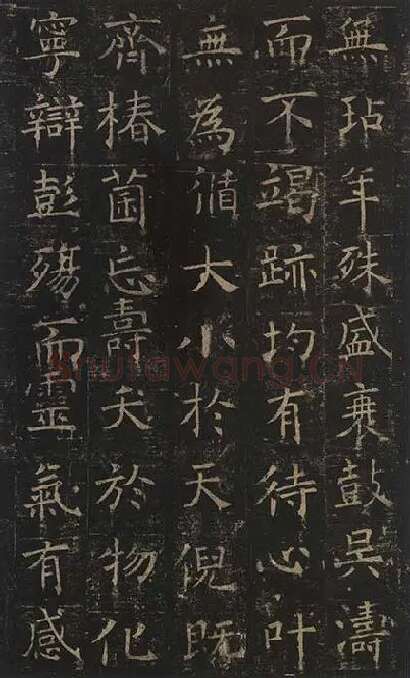 無玷年殊盛衰鼓吳濤
而不竭跡均有待心叶
無為循大小於天倪既
齊椿菌忘壽夭於物化
寧辯彭殤而靈氣有感
shufawang.CN